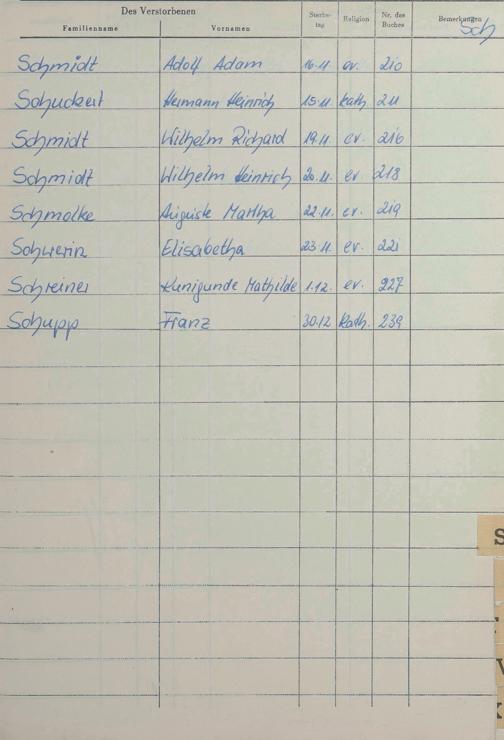 Des Verstorbenen
Familienname Vornamen Sterbe-tag Religion Nr. des Buches Bemerkungen
Sch
Schmidt Adolf Adam 16.11. ev. 210
Schuckert Hermann Heinrich 15.11. kath. 211
Schmidt Wilhelm Richard 19.11. ev. 216
Schmidt Wilhelm Heinrich 20.11. ev 218
Schmolke Auguste Martha 22.11. ev. 219
Schwerin Elisabetha 23.11 ev. 221
Schreiner Kunigunde Mathilde 1.12. ev. 227
Schupp Franz 30.12 Kath. 239
S
V
K